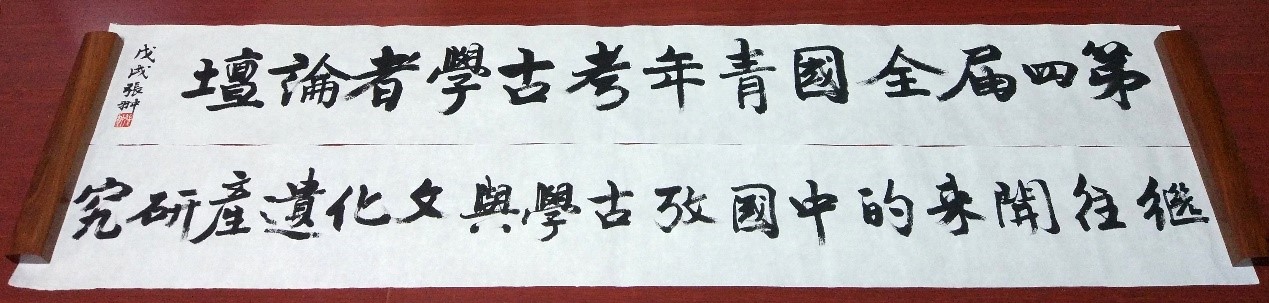 第四届全國青年考古學者論壇
戊戌張翀
繼往開来的中國攷古學與文化遺產研究